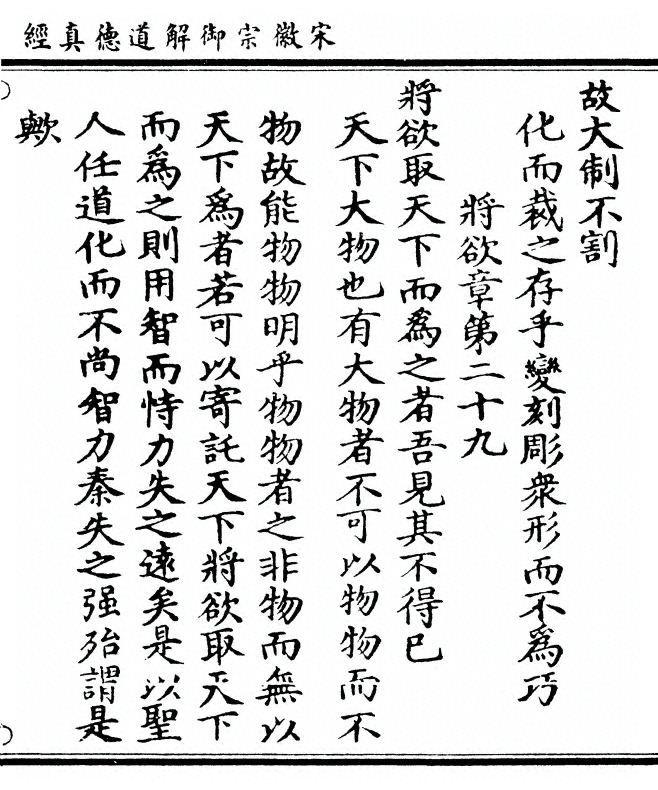 宋徽宗御解道德真經
故大制不割
化而裁之存乎變刻彫衆形而不爲巧
將欲章第二十九
將欲取天下而爲之者吾見其不得已
天下大物也有大物者不可以物物而不
物故能物物明乎物物者之非物而無以
天下爲者若可以寄託天下將欲取天下
而爲之則用智而恃力失之遠矣是以聖
人任道化而不尚智力秦失之强殆謂是
歟